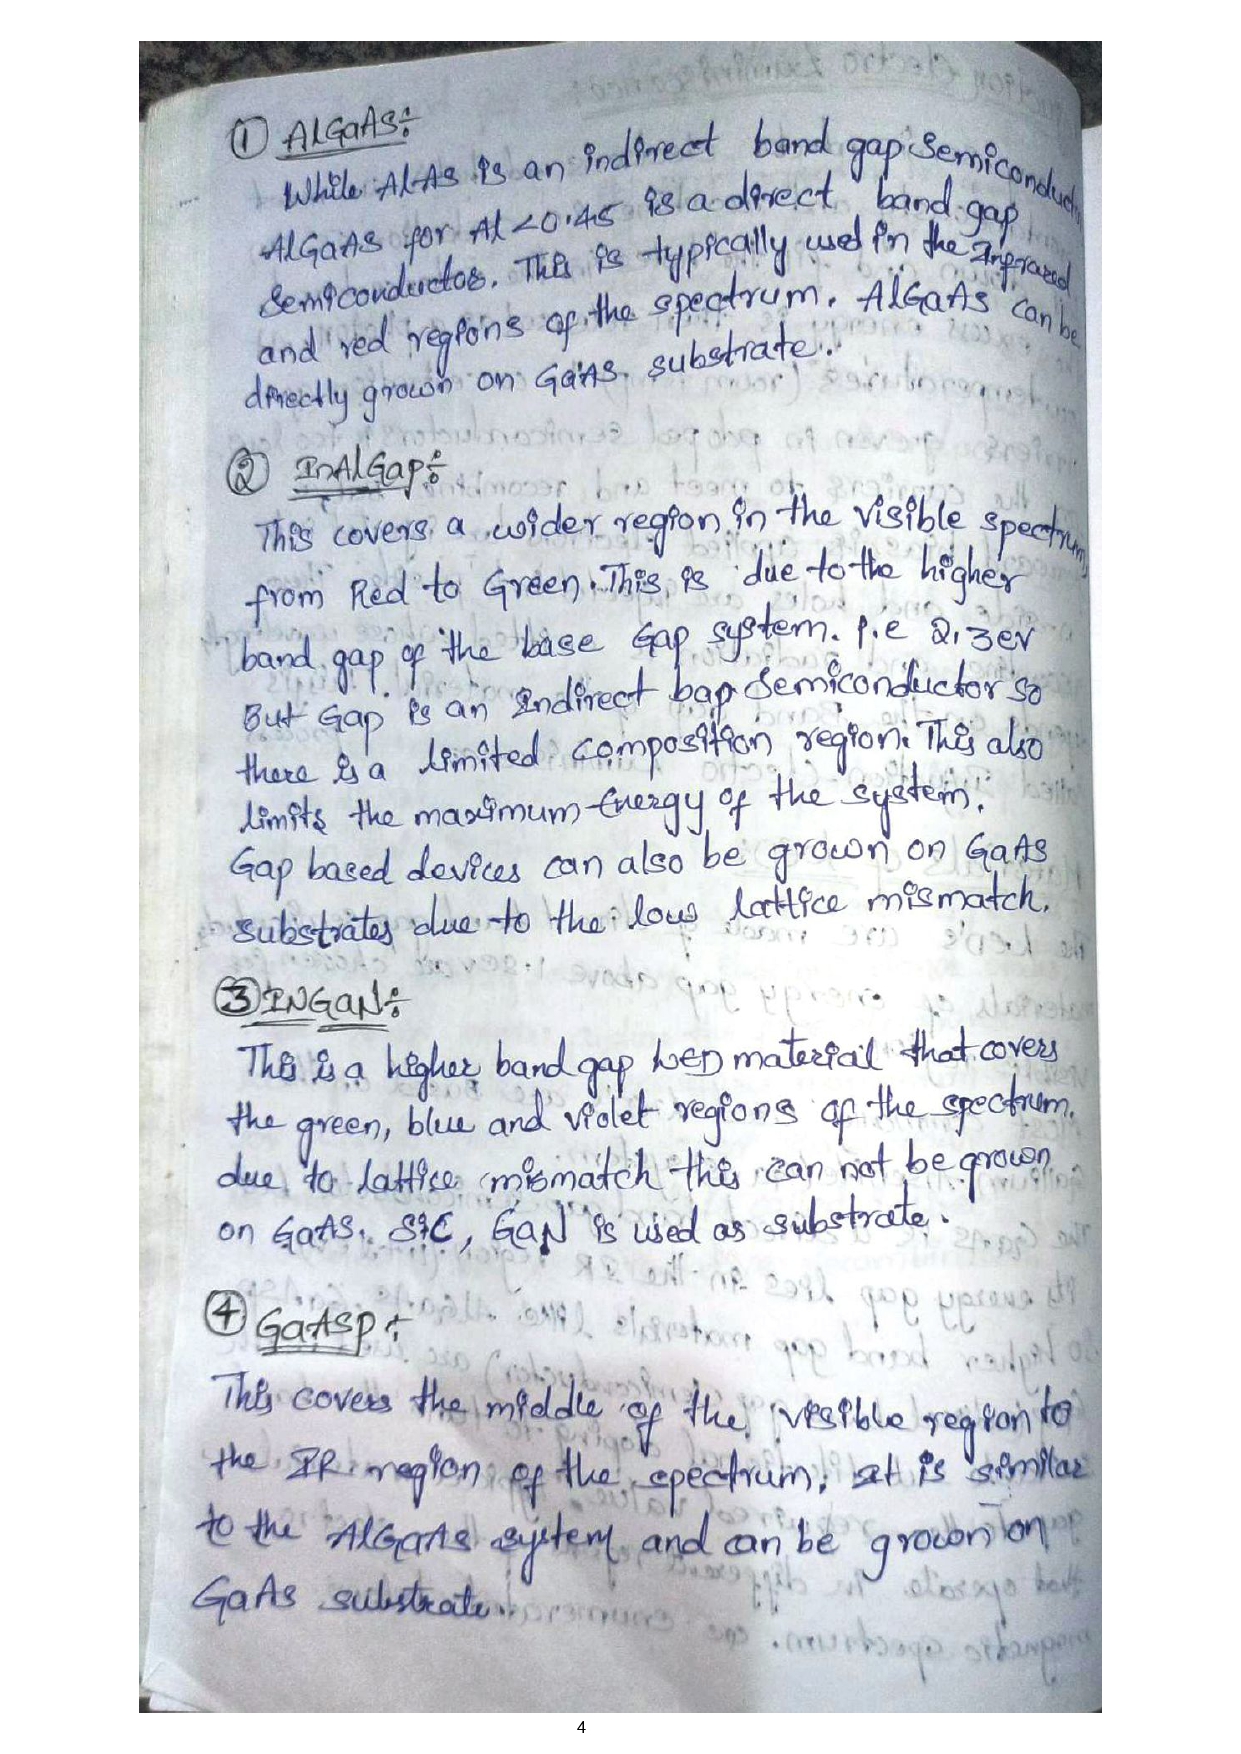 ① AlGaAs÷
While AlAs is an indirect band gap Semiconduct
AlGaAs for Al <0.45 is a direct band gap
Semiconductor. This is typically used in the Infrared
and red regions of the spectrum. AlGaAs can be
directly grown on GaAs substrate.
② InAlGap÷
This covers a wider region in the visible spectrum
from Red to Green. This is due to the higher
band gap of the base Gap system. i.e 2.3ev
But Gap is an Indirect bap Semiconductor so
there is a limited composition region. This also
limits the maximum Energy of the system.
Gap based devices can also be grown on GaAs
substrates due to the low lattice mismatch.
③ INGaN÷
This is a higher band gap LED material that covers
the green, blue and violet regions of the spectrum.
due to lattice mismatch this can not be grown
on GaAs. SiC, GaN is used as substrate.
④ GaAsp÷
This covers the middle of the visible region to
the IR region of the spectrum. It is similar
to the AlGaAs system and can be grown on
GaAs substrate.
4